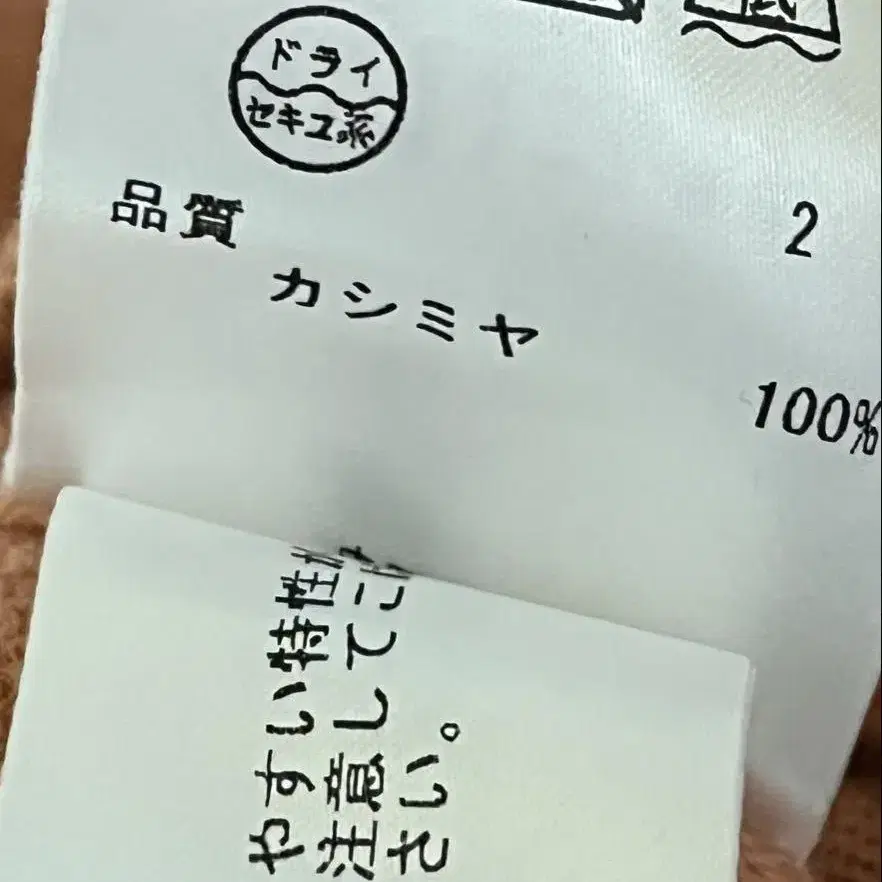 ドライ
セキユ系
品質
2
カシミヤ
100%
やすい特性
注意して
さい。